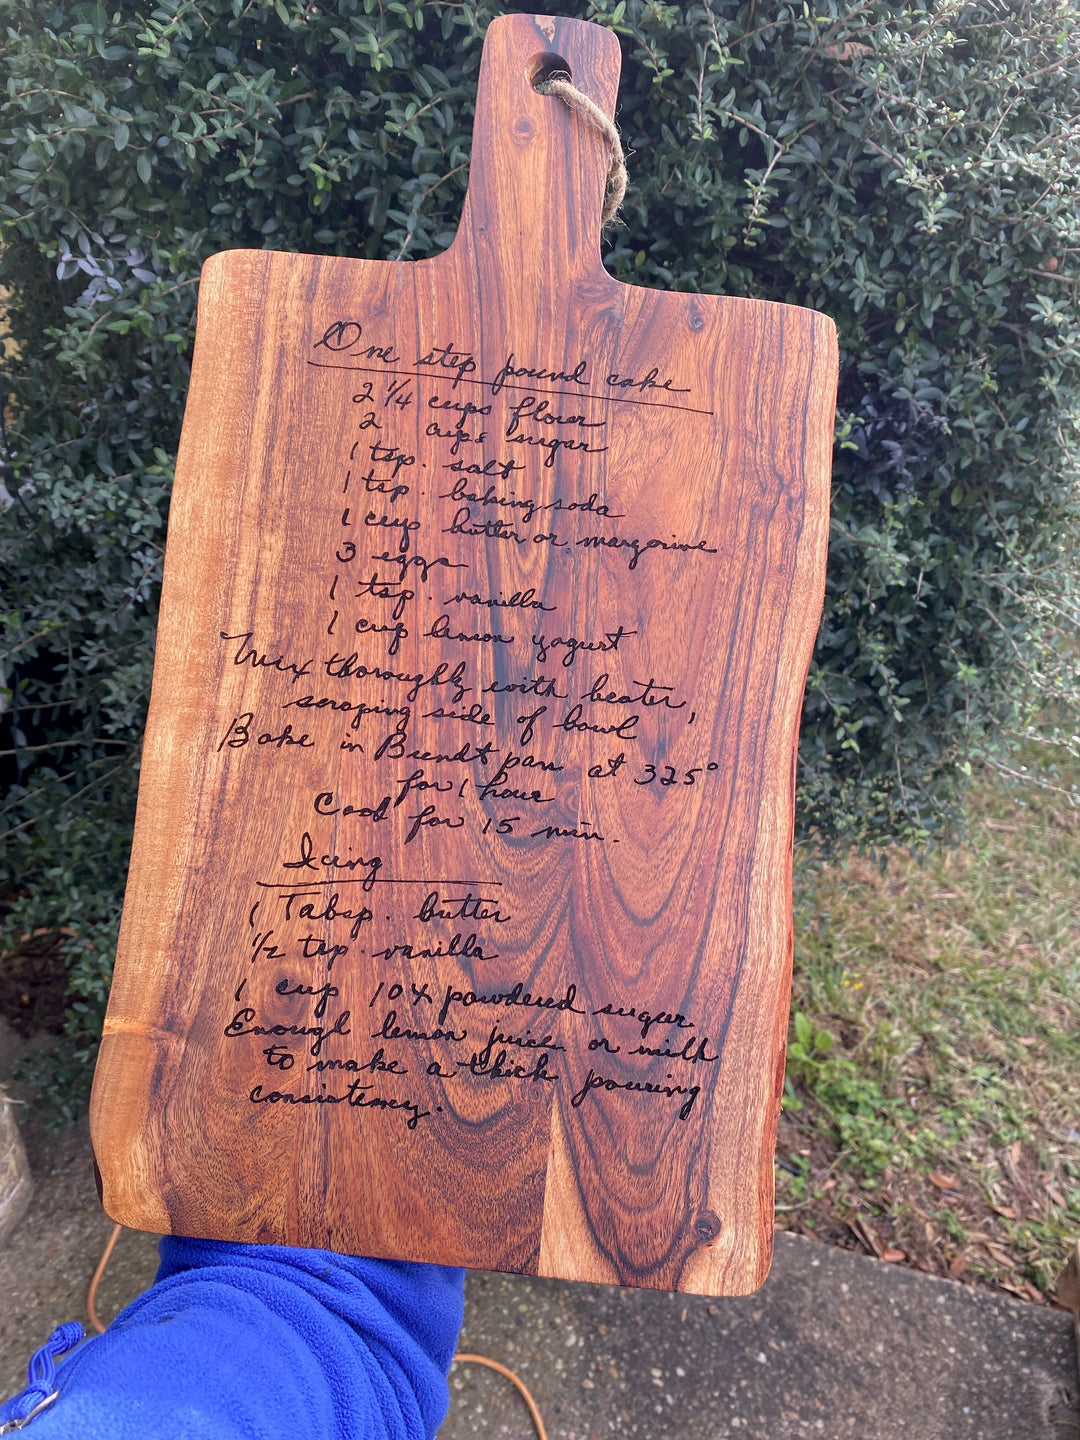 One step pound cake
2 1/4 cups flour
2 cups sugar
1 tsp. salt
1 tsp. baking soda
1 cup butter or margarine
3 eggs
1 tsp. vanilla
1 cup lemon yogurt
Mix thoroughly with beater,
scraping side of bowl
Bake in Bundt pan at 325°
for 1 hour
Cool for 15 min.
Icing
1 Tabsp. butter
1/2 tsp. vanilla
1 cup 10X powdered sugar
Enough lemon juice or milk
to make a thick pouring
consistency.